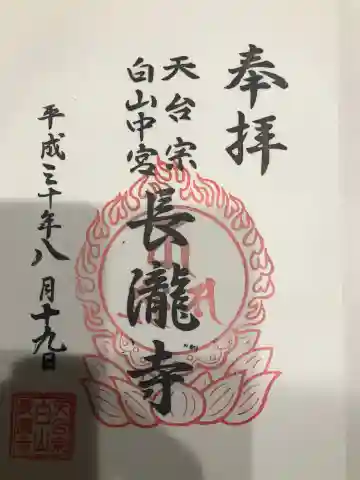 奉拝
天台宗
白山中宮
長瀧寺
平成三十年八月十九日